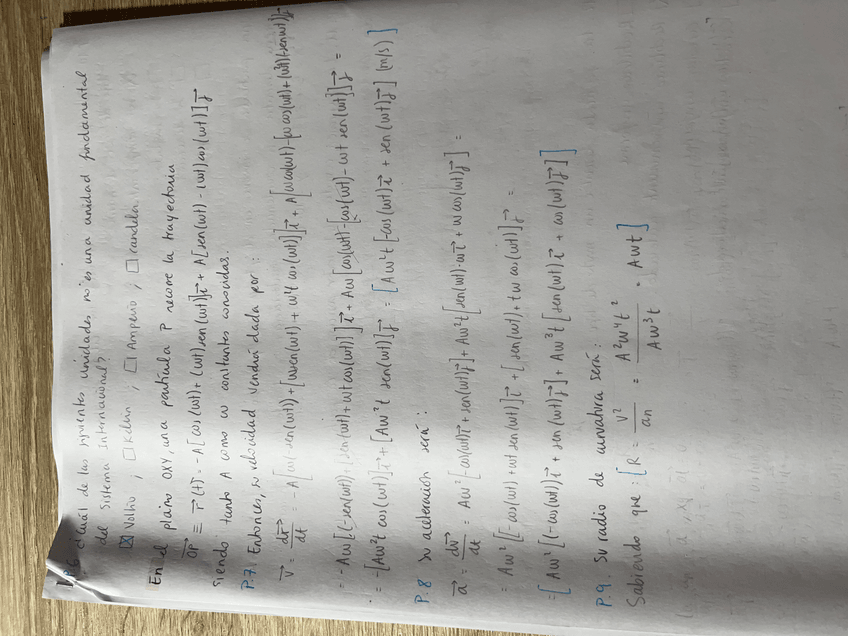 P.6. ¿Cuál de las siguientes unidades no es una unidad fundamental
del Sistema Internacional?
☒ Voltio ; ☐ Kelvin ; ☐ Amperio ; ☐ candela
En el plano OXY, una partícula P recorre la trayectoria
$\vec{OP}$ ≡ $\vec{r}$(t) = -A[cos(ωt) + (ωt)sen(ωt)]$\vec{i}$ + A[sen(ωt) - (ωt)cos(ωt)]$\vec{j}$
siendo tanto A como ω constantes conocidas.
P.7. Entonces, su velocidad vendrá dada por :
$\vec{v}$ = $\frac{d\vec{r}}{dt}$ = -A[ω(-sen(ωt)) + [ωsen(ωt) + ω²t cos(ωt)]]$\vec{i}$ + A[ωcos(ωt) - [ω cos(ωt) + (ω²t)(-sen(ωt))]]$\vec{j}$
= -Aω[(-sen(ωt)) + [sen(ωt) + ωt cos(ωt)]]$\vec{i}$ + Aω[cos(ωt) - [cos(ωt) - ωt sen(ωt)]]$\vec{j}$ =
= -[Aω²t cos(ωt)]$\vec{i}$ + [Aω²t sen(ωt)]$\vec{j}$ = [Aω²t[-cos(ωt)$\vec{i}$ + sen(ωt)$\vec{j}$] (m/s)]
P.8 Su aceleración será :
$\vec{a}$ = $\frac{d\vec{v}}{dt}$ = Aω²[-cos(ωt)$\vec{i}$ + sen(ωt)$\vec{j}$] + Aω²t[sen(ωt)·ω$\vec{i}$ + ω cos(ωt)$\vec{j}$] =
= Aω²[[-cos(ωt) + ωt sen(ωt)]$\vec{i}$ + [sen(ωt) + tω cos(ωt)]$\vec{j}$ =
= [Aω²[(-cos(ωt))$\vec{i}$ + sen(ωt)$\vec{j}$] + Aω³t[sen(ωt)$\vec{i}$ + cos(ωt)$\vec{j}$]]
P.9. Su radio de curvatura será :
Sabiendo que : [R = $\frac{v^2}{a_n}$ = $\frac{A^2ω^4t^2}{Aω^3t}$ = Aωt]